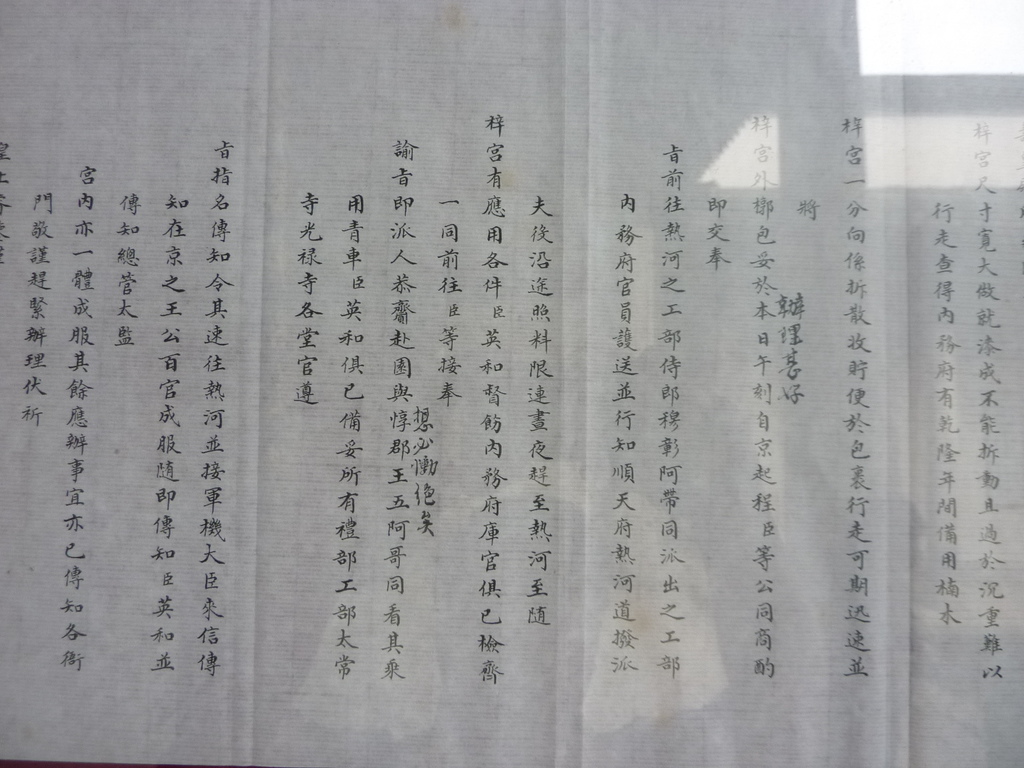 梓宮尺寸寬大做就漆成不能拆動且過於沉重難以
行走查得內務府有乾隆年間備用楠木
梓宮一分向係拆散收貯便於包裹行走可期迅速並
將
辦理甚好
梓宮外槨包妥於本日午刻自京起程臣等公同商酌
即交奉
旨前往熱河之工部侍郎穆彰阿帶同派出之工部
內務府官員護送並行知順天府熱河道撥派
夫後沿途照料限連晝夜趕至熱河至随
梓宮有應用各件臣英和督飭內務府庫官俱已檢齊
一同前往臣等接奉
想必慟絕矣
諭旨即派人恭齎赴園與惇郡王五阿哥同看其乘
用青車臣英和俱已備妥所有禮部工部太常
寺光禄寺各堂官遵
旨指名傳知令其速往熱河並接軍機大臣來信傳
知在京之王公百官成服随即傳知臣英和並
傳知總管太監
宮內亦一體成服其餘應辦事宜亦已傳知各衙
門敬謹趕緊辦理伏祈